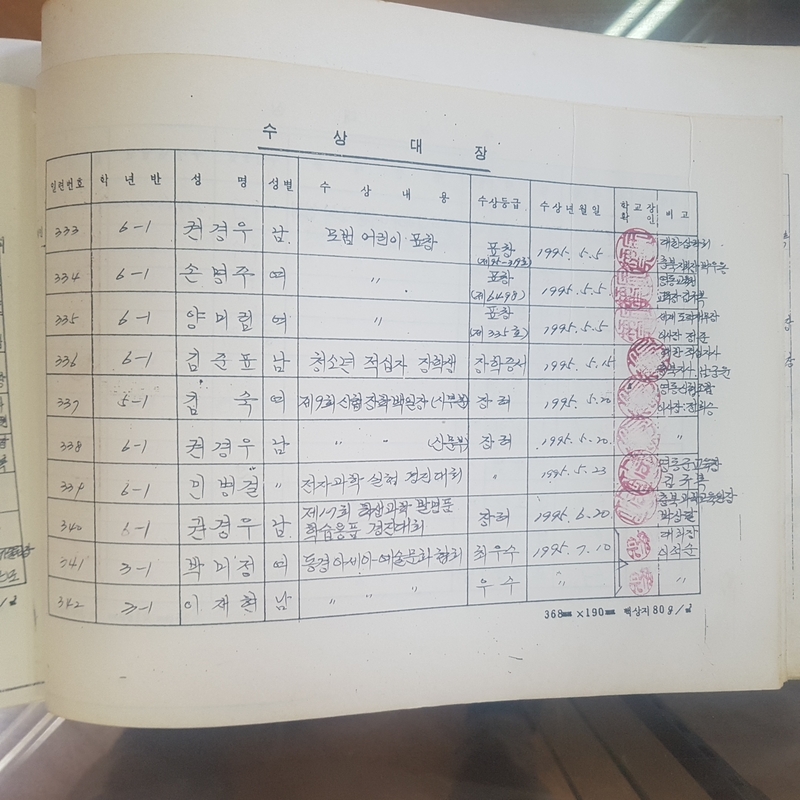 수 상 대 장
일련번호 학 년 반 성 명 성별 수 상 내 용 수상등급 수상년월일 학교장 확인 비 고
333 6-1 권경우 남 모범 어린이 표창 표창 1995. 5. 5
334 6-1 손병주 여 〃 표창 (제6498) 1995. 5. 5
335 6-1 양미림 여 〃 표창 (제335호) 1995. 5. 5
336 6-1 김준표 남 청소년 적십자 장학생 장학증서 1995. 5. 15
337 5-1 김숙 여 제9회 신협 장학백원장 (시부분) 장려 1995. 5. 20
338 6-1 권경우 남 〃 〃 (산문부) 장려 1995. 5. 20. 〃
339 6-1 민병걸 〃 전자과학 실험 경진대회 〃 1995. 5. 23 영동군교육장
340 6-1 권경우 남 제17회 학생과학 발명품 학습용품 경진대회 장려 1995. 6. 20 충북과학교육원장
341 3-1 박미정 여 동경아세아예술문화협회 최우수 1995. 7. 10 대회장 이석순
342 3-1 이재환 남 〃 〃 〃 우수 〃 〃
368㎜ ×190㎜ 백상지 80g/㎡